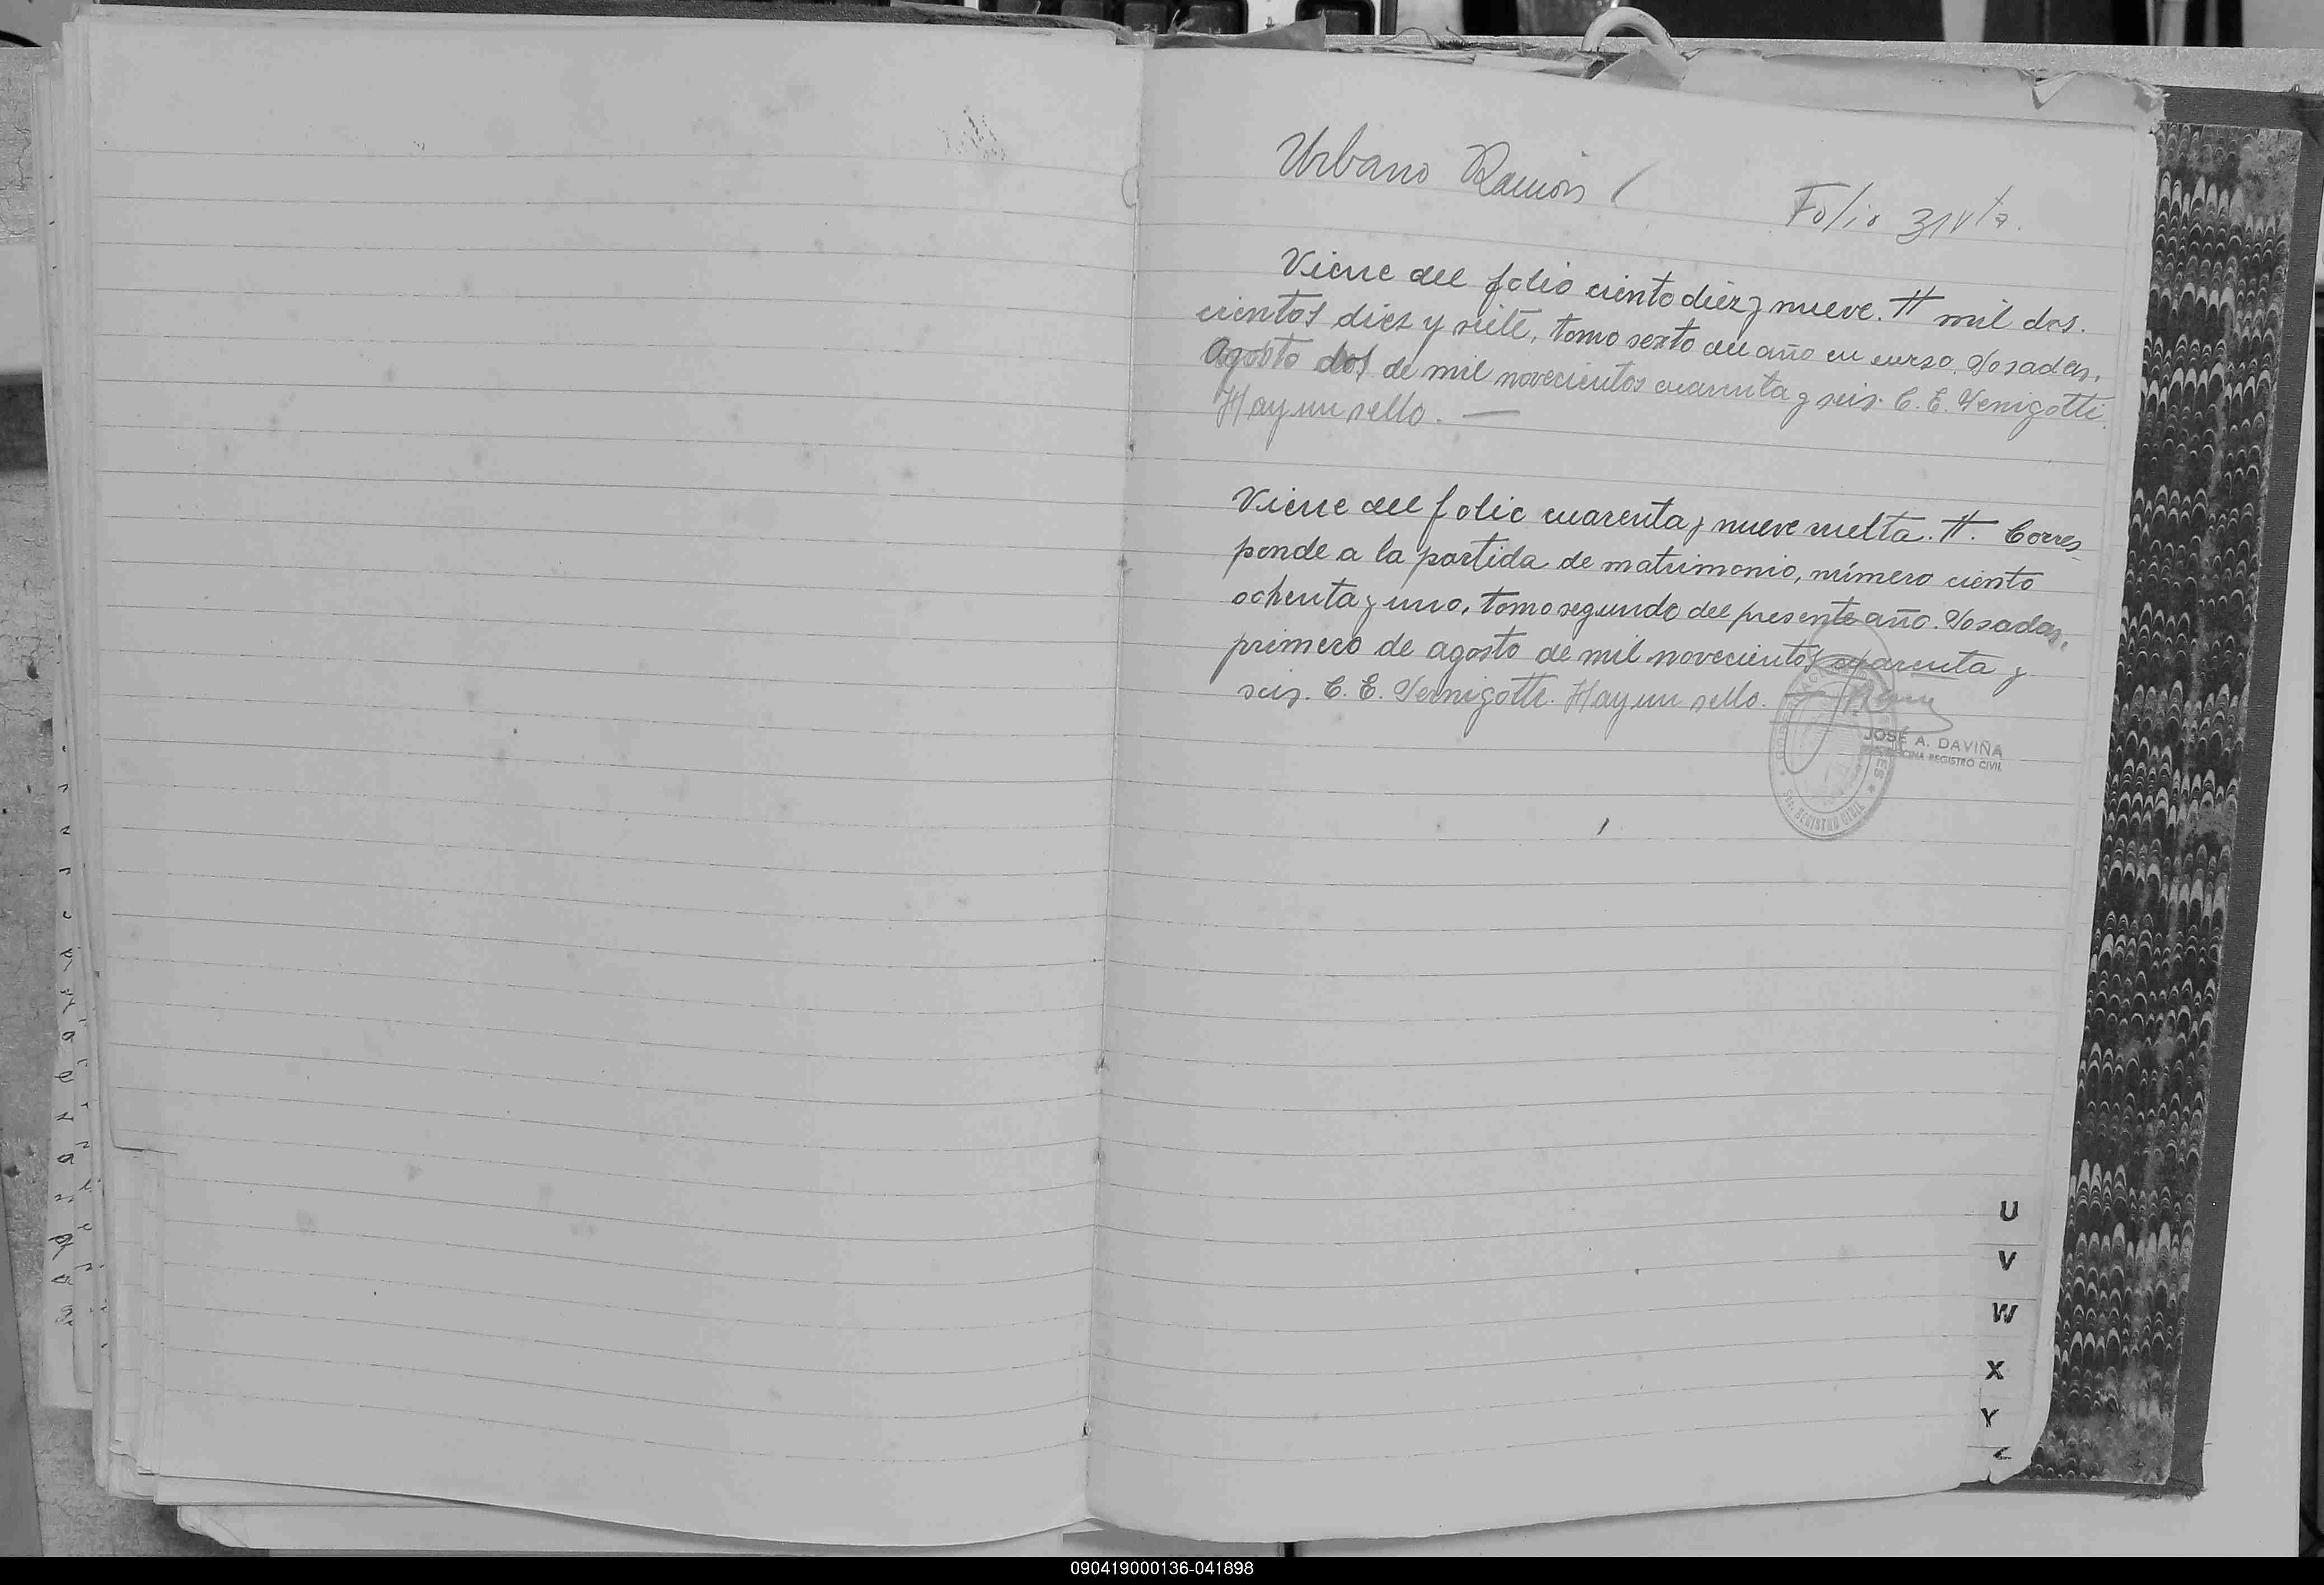 Urbano Ramón
Folio 31 vta.
Viene del folio ciento diez y nueve. tt mil dos.
cientos diez y siete, tomo sexto del año en curso. Posadas,
Agosto dos de mil novecientos cuarenta y seis. C. E. Vernigotti.
Hay un sello. —
Viene del folio cuarenta y nueve vuelta. tt. Corres
ponde a la partida de matrimonio, número ciento
ochenta y uno, tomo segundo del presente año. Posadas,
primero de agosto de mil novecientos cuarenta y
seis. C. E. Vernigotti. Hay un sello.
JOSÉ A. DAVIÑA
OFICINA REGISTRO CIVIL
REGISTRO CIVIL
U
V
W
X
Y
Z
090419000136-041898